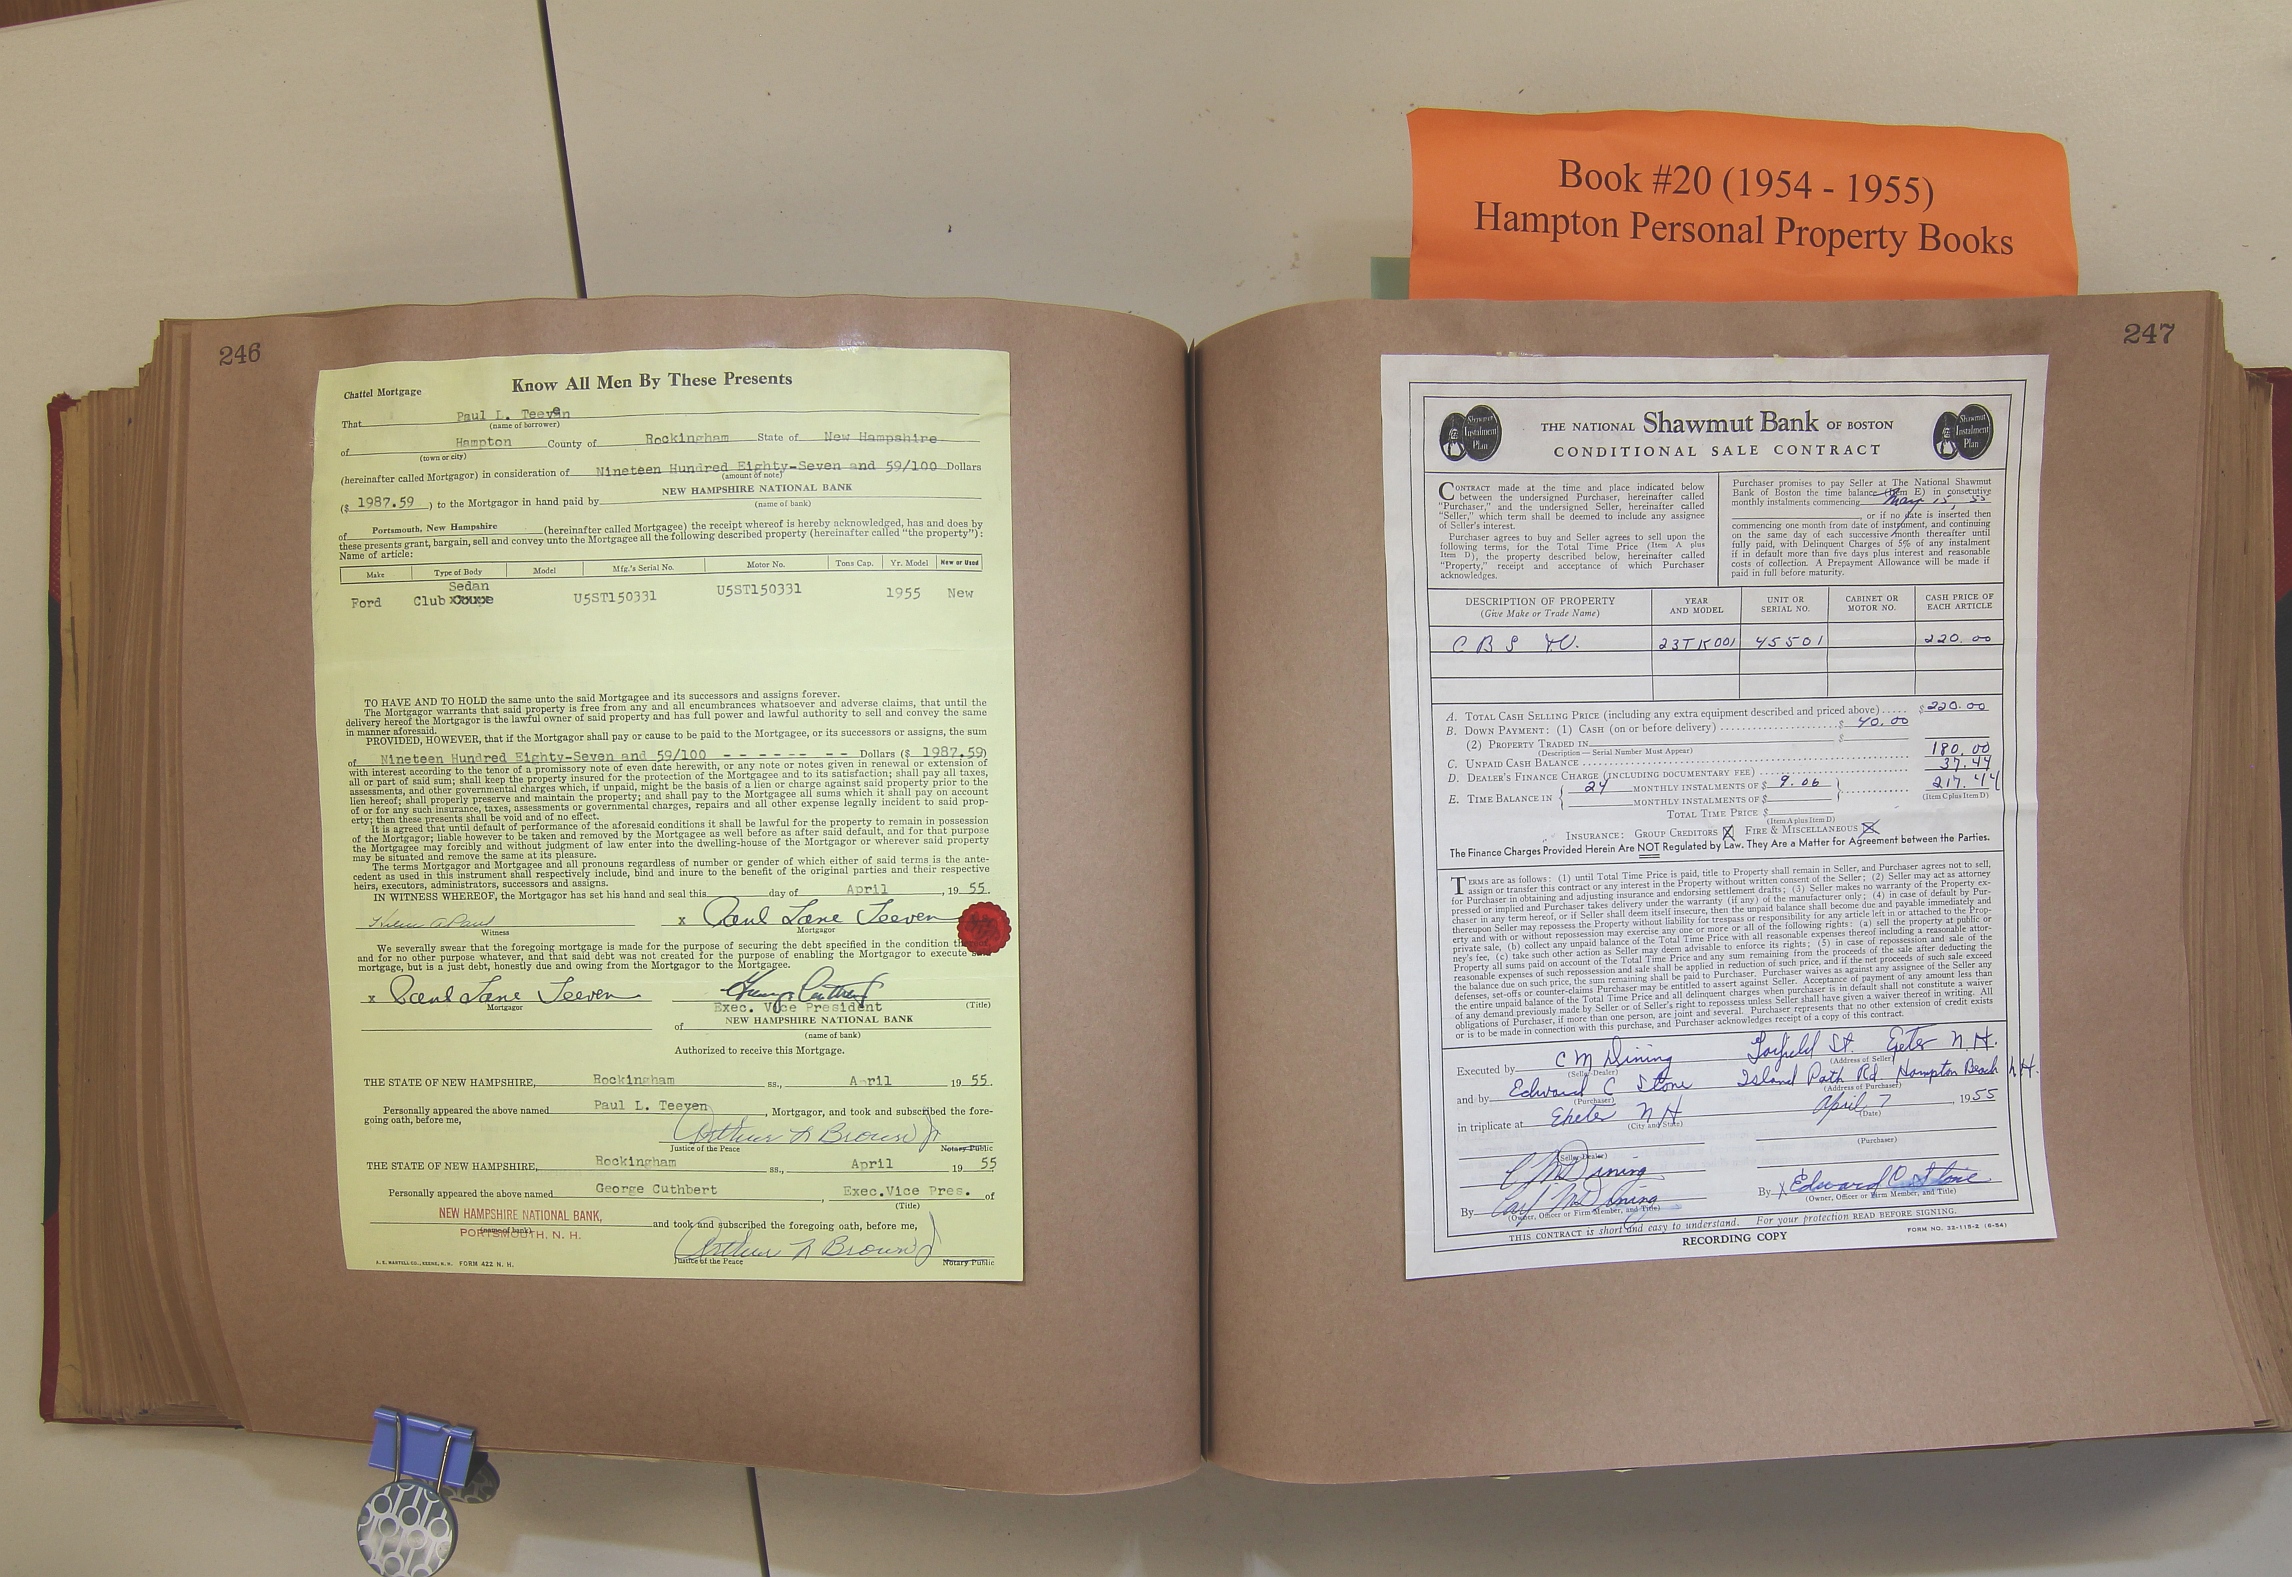 Book #20 (1954 - 1955)
Hampton Personal Property Books
246
Chattel Mortgage
Know All Men By These Presents
That Paul L. Teeven
(name of borrower)
of Hampton County of Rockingham State of New Hampshire
(town or city)
(hereinafter called Mortgagor) in consideration of Nineteen Hundred Eighty-Seven and 59/100 Dollars
(amount of note)
($ 1987.59 ) to the Mortgagor in hand paid by NEW HAMPSHIRE NATIONAL BANK
(name of bank)
of Portsmouth, New Hampshire (hereinafter called Mortgagee) the receipt whereof is hereby acknowledged, has and does by
these presents grant, bargain, sell and convey unto the Mortgagee all the following described property (hereinafter called "the property"):
Name of article:
Make Type of Body Model Mfg.'s Serial No. Motor No. Tons Cap. Yr. Model New or Used
Sedan
Ford Club U5ST150331 U5ST150331 1955 New
TO HAVE AND TO HOLD the same unto the said Mortgagee and its successors and assigns forever.
The Mortgagor warrants that said property is free from any and all encumbrances whatsoever and adverse claims, that until the
delivery hereof the Mortgagor is the lawful owner of said property and has full power and lawful authority to sell and convey the same
in manner aforesaid.
PROVIDED, HOWEVER, that if the Mortgagor shall pay or cause to be paid to the Mortgagee, or its successors or assigns, the sum
of Nineteen Hundred Eighty-Seven and 59/100 - - - - - - - - Dollars ($ 1987.59)
with interest according to the tenor of a promissory note of even date herewith, or any note or notes given in renewal or extension of
all or part of said sum; shall keep the property insured for the protection of the Mortgagee and to its satisfaction; shall pay all taxes,
assessments, and other governmental charges which, if unpaid, might be the basis of a lien or charge against said property prior to the
lien hereof; shall properly preserve and maintain the property; and shall pay to the Mortgagee all sums which it shall pay on account
of or for any such insurance, taxes, assessments or governmental charges, repairs and all other expense legally incident to said prop-
erty; then these presents shall be void and of no effect.
It is agreed that until default of performance of the aforesaid conditions it shall be lawful for the property to remain in possession
of the Mortgagor; liable however to be taken and removed by the Mortgagee as well before as after said default, and for that purpose
the Mortgagee may forcibly and without judgment of law enter into the dwelling-house of the Mortgagor or wherever said property
may be situated and remove the same at its pleasure.
The terms Mortgagor and Mortgagee and all pronouns regardless of number or gender of which either of said terms is the ante-
cedent as used in this instrument shall respectively include, bind and inure to the benefit of the original parties and their respective
heirs, executors, administrators, successors and assigns.
IN WITNESS WHEREOF, the Mortgagor has set his hand and seal this day of April , 19 55.
x Paul Lane Teeven
Witness Mortgagor
We severally swear that the foregoing mortgage is made for the purpose of securing the debt specified in the condition
and for no other purpose whatever, and that said debt was not created for the purpose of enabling the Mortgagor to execute said
mortgage, but is a just debt, honestly due and owing from the Mortgagor to the Mortgagee.
x Paul Lane Teeven
Mortgagor
Exec. Vice President (Title)
of NEW HAMPSHIRE NATIONAL BANK
(name of bank)
Authorized to receive this Mortgage.
THE STATE OF NEW HAMPSHIRE, Rockingham ss., April 19 55.
Personally appeared the above named Paul L. Teeven , Mortgagor, and took and subscribed the fore-
going oath, before me,
Arthur L Brown Jr
Justice of the Peace Notary Public
THE STATE OF NEW HAMPSHIRE, Rockingham ss., April 19 55
Personally appeared the above named George Cuthbert , Exec.Vice Pres. of
(Title)
NEW HAMPSHIRE NATIONAL BANK,
(name of bank) and took and subscribed the foregoing oath, before me,
PORTSMOUTH, N. H.
Arthur L Brown Jr
Justice of the Peace Notary Public
FORM 422 N. H.
247
Shawmut Instalment Plan
THE NATIONAL Shawmut Bank OF BOSTON
CONDITIONAL SALE CONTRACT
Shawmut Instalment Plan
CONTRACT made at the time and place indicated below
between the undersigned Purchaser, hereinafter called
"Purchaser," and the undersigned Seller, hereinafter called
"Seller," which term shall be deemed to include any assignee
of Seller's interest.
Purchaser agrees to buy and Seller agrees to sell upon the
following terms, for the Total Time Price (Item A plus
Item D), the property described below, hereinafter called
"Property," receipt and acceptance of which Purchaser
acknowledges.
Purchaser promises to pay Seller at The National Shawmut
Bank of Boston the time balance (Item E) in consecutive
monthly instalments commencing May 15 55
or if no date is inserted then
commencing one month from date of instrument, and continuing
on the same day of each successive month thereafter until
fully paid, with Delinquent Charges of 5% of any instalment
if in default more than five days plus interest and reasonable
costs of collection. A Prepayment Allowance will be made if
paid in full before maturity.
DESCRIPTION OF PROPERTY (Give Make or Trade Name) YEAR AND MODEL UNIT OR SERIAL NO. CABINET OR MOTOR NO. CASH PRICE OF EACH ARTICLE
C B S 23TK001 45501 220.00
A. TOTAL CASH SELLING PRICE (including any extra equipment described and priced above)..... $220.00
B. DOWN PAYMENT: (1) CASH (on or before delivery) ........ $ 40.00
(2) PROPERTY TRADED IN $
(Description — Serial Number Must Appear)
C. UNPAID CASH BALANCE ........ 180.00
D. DEALER'S FINANCE CHARGE (INCLUDING DOCUMENTARY FEE) ........ 37.44
E. TIME BALANCE IN { 24 MONTHLY INSTALMENTS OF $ 9.06 } ........ 217.44
MONTHLY INSTALMENTS OF $ (Item C plus Item D)
TOTAL TIME PRICE $
(Item A plus Item D)
INSURANCE: GROUP CREDITORS X FIRE & MISCELLANEOUS X
The Finance Charges Provided Herein Are NOT Regulated by Law. They Are a Matter for Agreement between the Parties.
TERMS are as follows: (1) until Total Time Price is paid, title to Property shall remain in Seller, and Purchaser agrees not to sell,
assign or transfer this contract or any interest in the Property without written consent of the Seller; (2) Seller may act as attorney
for Purchaser in obtaining and adjusting insurance and endorsing settlement drafts; (3) Seller makes no warranty of the Property ex-
pressed or implied and Purchaser takes delivery under the warranty (if any) of the manufacturer only; (4) in case of default by Pur-
chaser in any term hereof, or if Seller shall deem itself insecure, then the unpaid balance shall become due and payable immediately and
thereupon Seller may repossess the Property without liability for trespass or responsibility for any article left in or attached to the Prop-
erty and with or without repossession may exercise any one or more or all of the following rights: (a) sell the property at public or
private sale, (b) collect any unpaid balance of the Total Time Price with all reasonable expenses thereof including a reasonable attor-
ney's fee, (c) take such other action as Seller may deem advisable to enforce its rights; (5) in case of repossession and sale of the
Property all sums paid on account of the Total Time Price and any sum remaining from the proceeds of the sale after deducting the
reasonable expenses of such repossession and sale shall be applied in reduction of such price, and if the net proceeds of such sale exceed
the balance due on such price, the sum remaining shall be paid to Purchaser. Purchaser waives as against any assignee of the Seller any
defenses, set-offs or counter-claims Purchaser may be entitled to assert against Seller. Acceptance of payment of any amount less than
the entire unpaid balance of the Total Time Price and all delinquent charges when purchaser is in default shall not constitute a waiver
of any demand previously made by Seller or of Seller's right to repossess unless Seller shall have given a waiver thereof in writing. All
obligations of Purchaser, if more than one person, are joint and several. Purchaser represents that no other extension of credit exists
or is to be made in connection with this purchase, and Purchaser acknowledges receipt of a copy of this contract.
Executed by C M Dining Garfield St. Exeter N.H.
(Seller-Dealer) (Address of Seller)
and by Edward C Stone Island Path Rd Hampton Beach N.H.
(Purchaser) (Address of Purchaser)
in triplicate at Exeter N H April 7 , 1955
(City and State) (Date)
(Purchaser)
(Seller-Dealer)
C M Dining
By Carl M Dining By X Edward C Stone
(Owner, Officer or Firm Member, and Title) (Owner, Officer or Firm Member, and Title)
THIS CONTRACT is short and easy to understand. For your protection READ BEFORE SIGNING.
RECORDING COPY FORM NO. 32-115-2 (6-54)